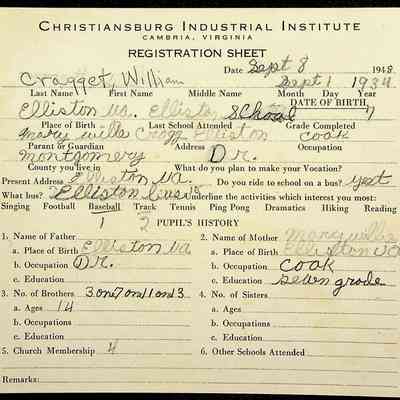 CHRISTIANSBURG INDUSTRIAL INSTITUTE
CAMBRIA, VIRGINIA
REGISTRATION SHEET
Date Sept 8 1948
Cragget, William Sept 1 1934
Last Name First Name Middle Name Month Day Year
DATE OF BIRTH
Elliston Va. Elliston School 7
Place of Birth Last School Attended Grade Completed
Mary Wills Cragg Elliston Cook
Parent or Guardian Address Occupation
Montgomery Dr.
County you live in What do you plan to make your Vocation?
Present Address Elliston Va. Do you ride to school on a bus? yest
What bus? Elliston bus 15 Underline the activities which interest you most:
Singing Football Baseball Track Tennis Ping Pong Dramatics Hiking Reading
1 2
PUPIL'S HISTORY
1. Name of Father 2. Name of Mother Mary wills
a. Place of Birth Elliston Va a. Place of Birth Elliston Va
b. Occupation Dr. b. Occupation Cook
c. Education c. Education seven grade
3. No. of Brothers 3 one 7 one 11 one 13 4. No. of Sisters
a. Ages 14 a. Ages
b. Occupations b. Occupations
c. Education c. Education
5. Church Membership 4 6. Other Schools Attended
Remarks: